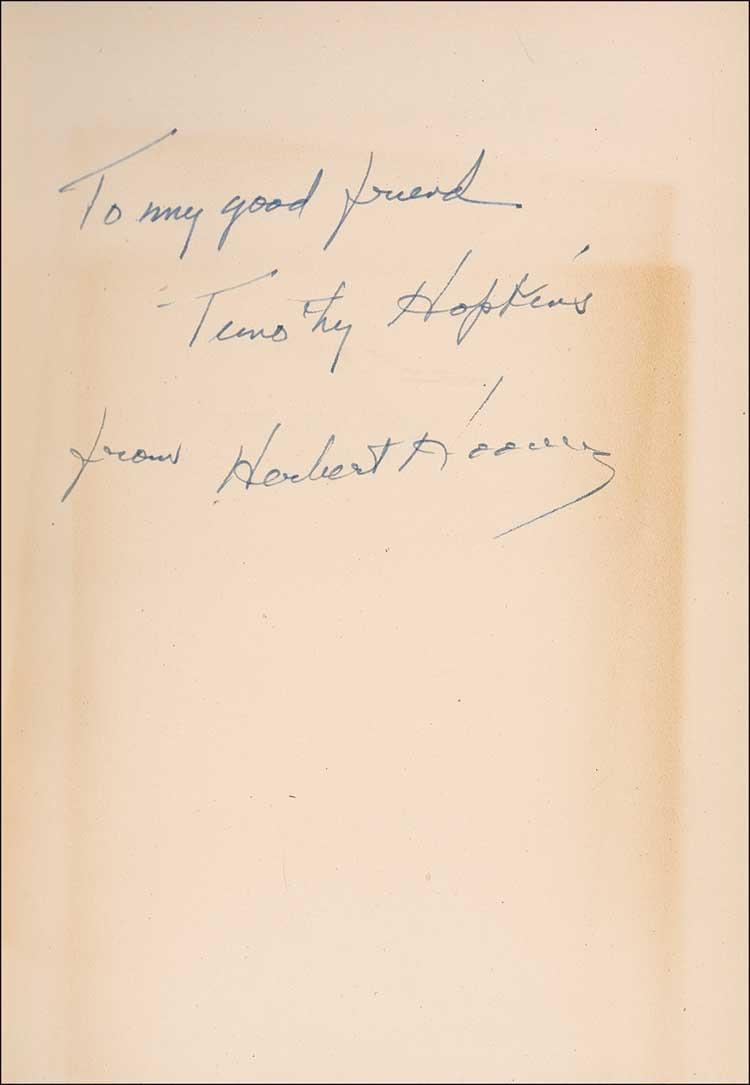 To my good friend
Timothy Hopkins
from Herbert Hoover